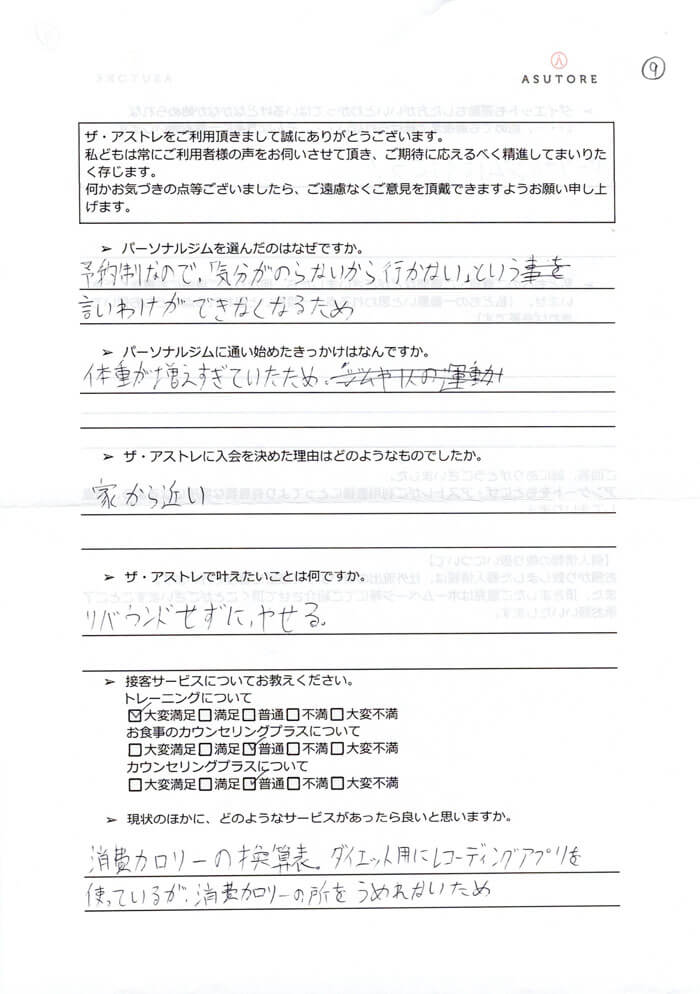 ASUTORE
⑨
ザ・アストレをご利用頂きまして誠にありがとうございます。
私どもは常にご利用者様の声をお伺いさせて頂き、ご期待に応えるべく精進してまいりたく存じます。
何かお気づきの点等ございましたら、ご遠慮なくご意見を頂戴できますようお願い申し上げます。
➢ パーソナルジムを選んだのはなぜですか。
予約制なので、「気分がのらないから行かない」という事を
言いわけができなくなるため
➢ パーソナルジムに通い始めたきっかけはなんですか。
体重が増えすぎていたため。
➢ ザ・アストレに入会を決めた理由はどのようなものでしたか。
家から近い
➢ ザ・アストレで叶えたいことは何ですか。
リバウンドせずに、やせる。
➢ 接客サービスについてお教えください。
トレーニングについて
☑大変満足□満足□普通□不満□大変不満
お食事のカウンセリングプラスについて
□大変満足□満足☑普通□不満□大変不満
カウンセリングプラスについて
□大変満足□満足☑普通□不満□大変不満
➢ 現状のほかに、どのようなサービスがあったら良いと思いますか。
消費カロリーの換算表。ダイエット用にレコーディングアプリを
使っているが、消費カロリーの所をうめれないため